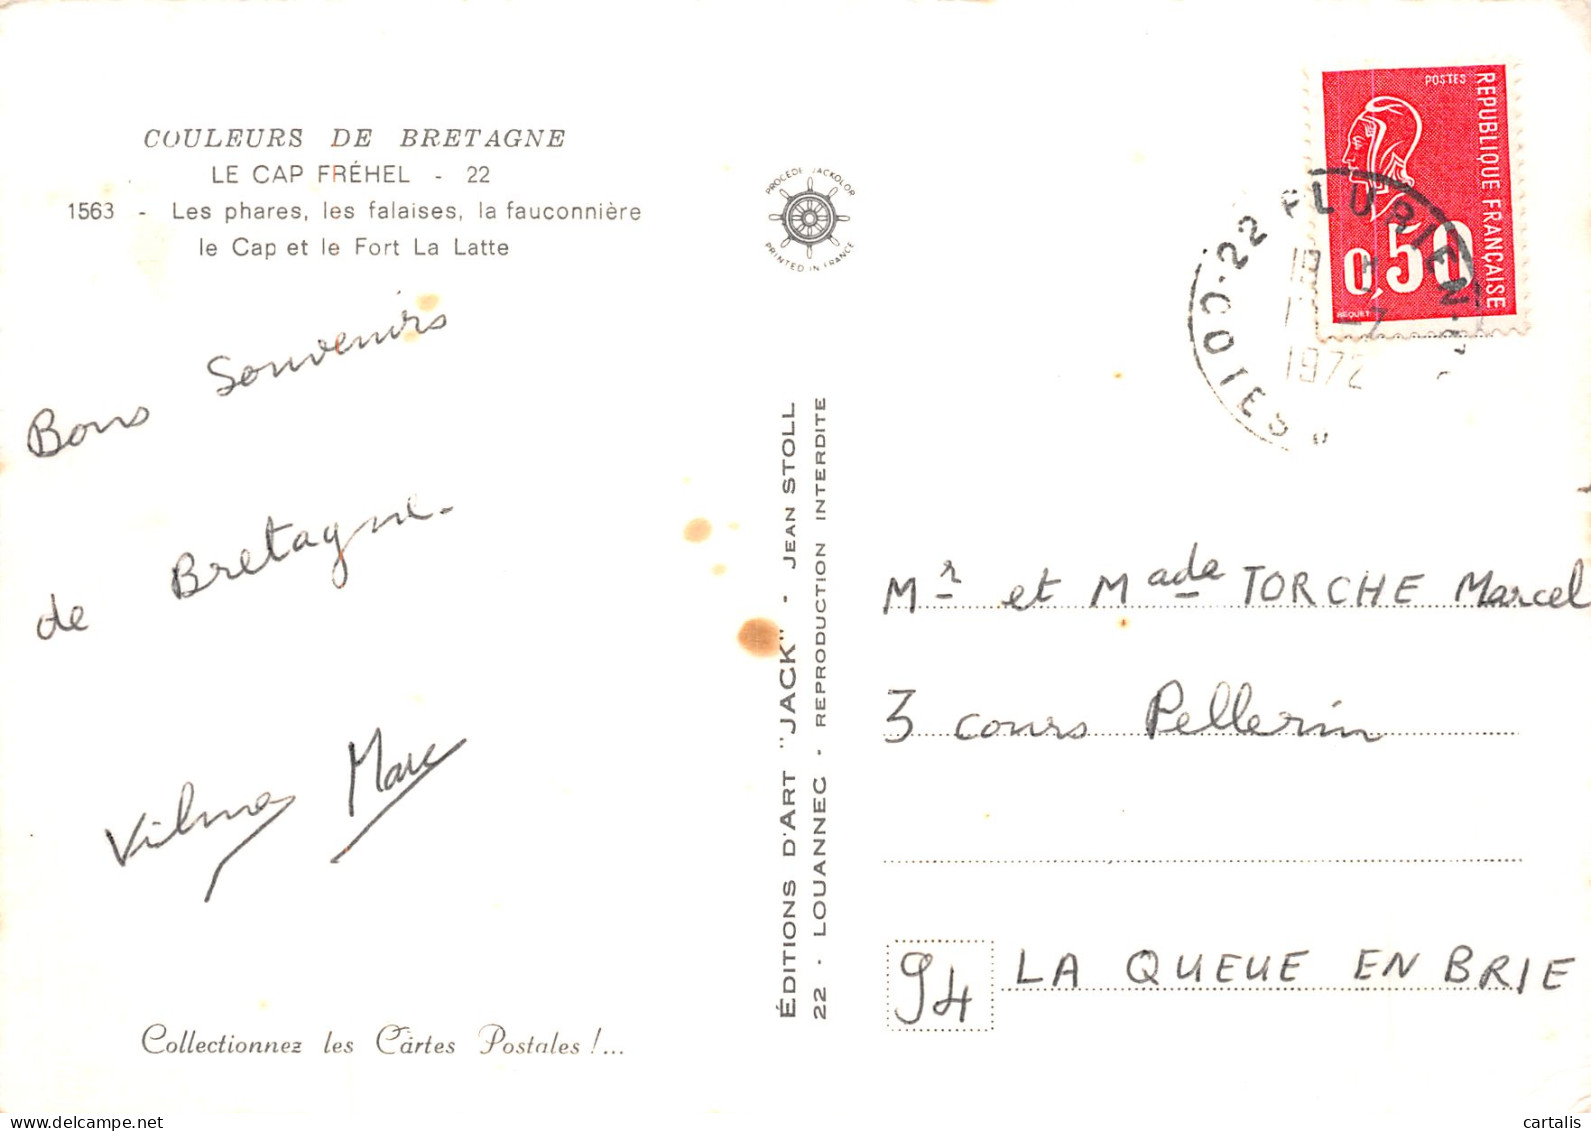 COULEURS DE BRETAGNE
LE CAP FRÉHEL - 22
1563 - Les phares, les falaises, la fauconnière
le Cap et le Fort La Latte
Bons Souvenirs
de Bretagne.
Vilma Marc
Collectionnez les Cartes Postales !...
PROCEDE JACKOLOR
PRINTED IN FRANCE
ÉDITIONS D'ART "JACK" - JEAN STOLL
22 - LOUANNEC - REPRODUCTION INTERDITE
POSTES
REPUBLIQUE FRANÇAISE
0,50
BEQUET
22 PLURIEN
1972
Mr et Made TORCHE Marcel
3 cours Pellerin
94 LA QUEUE EN BRIE
delcampe.net
cartalis